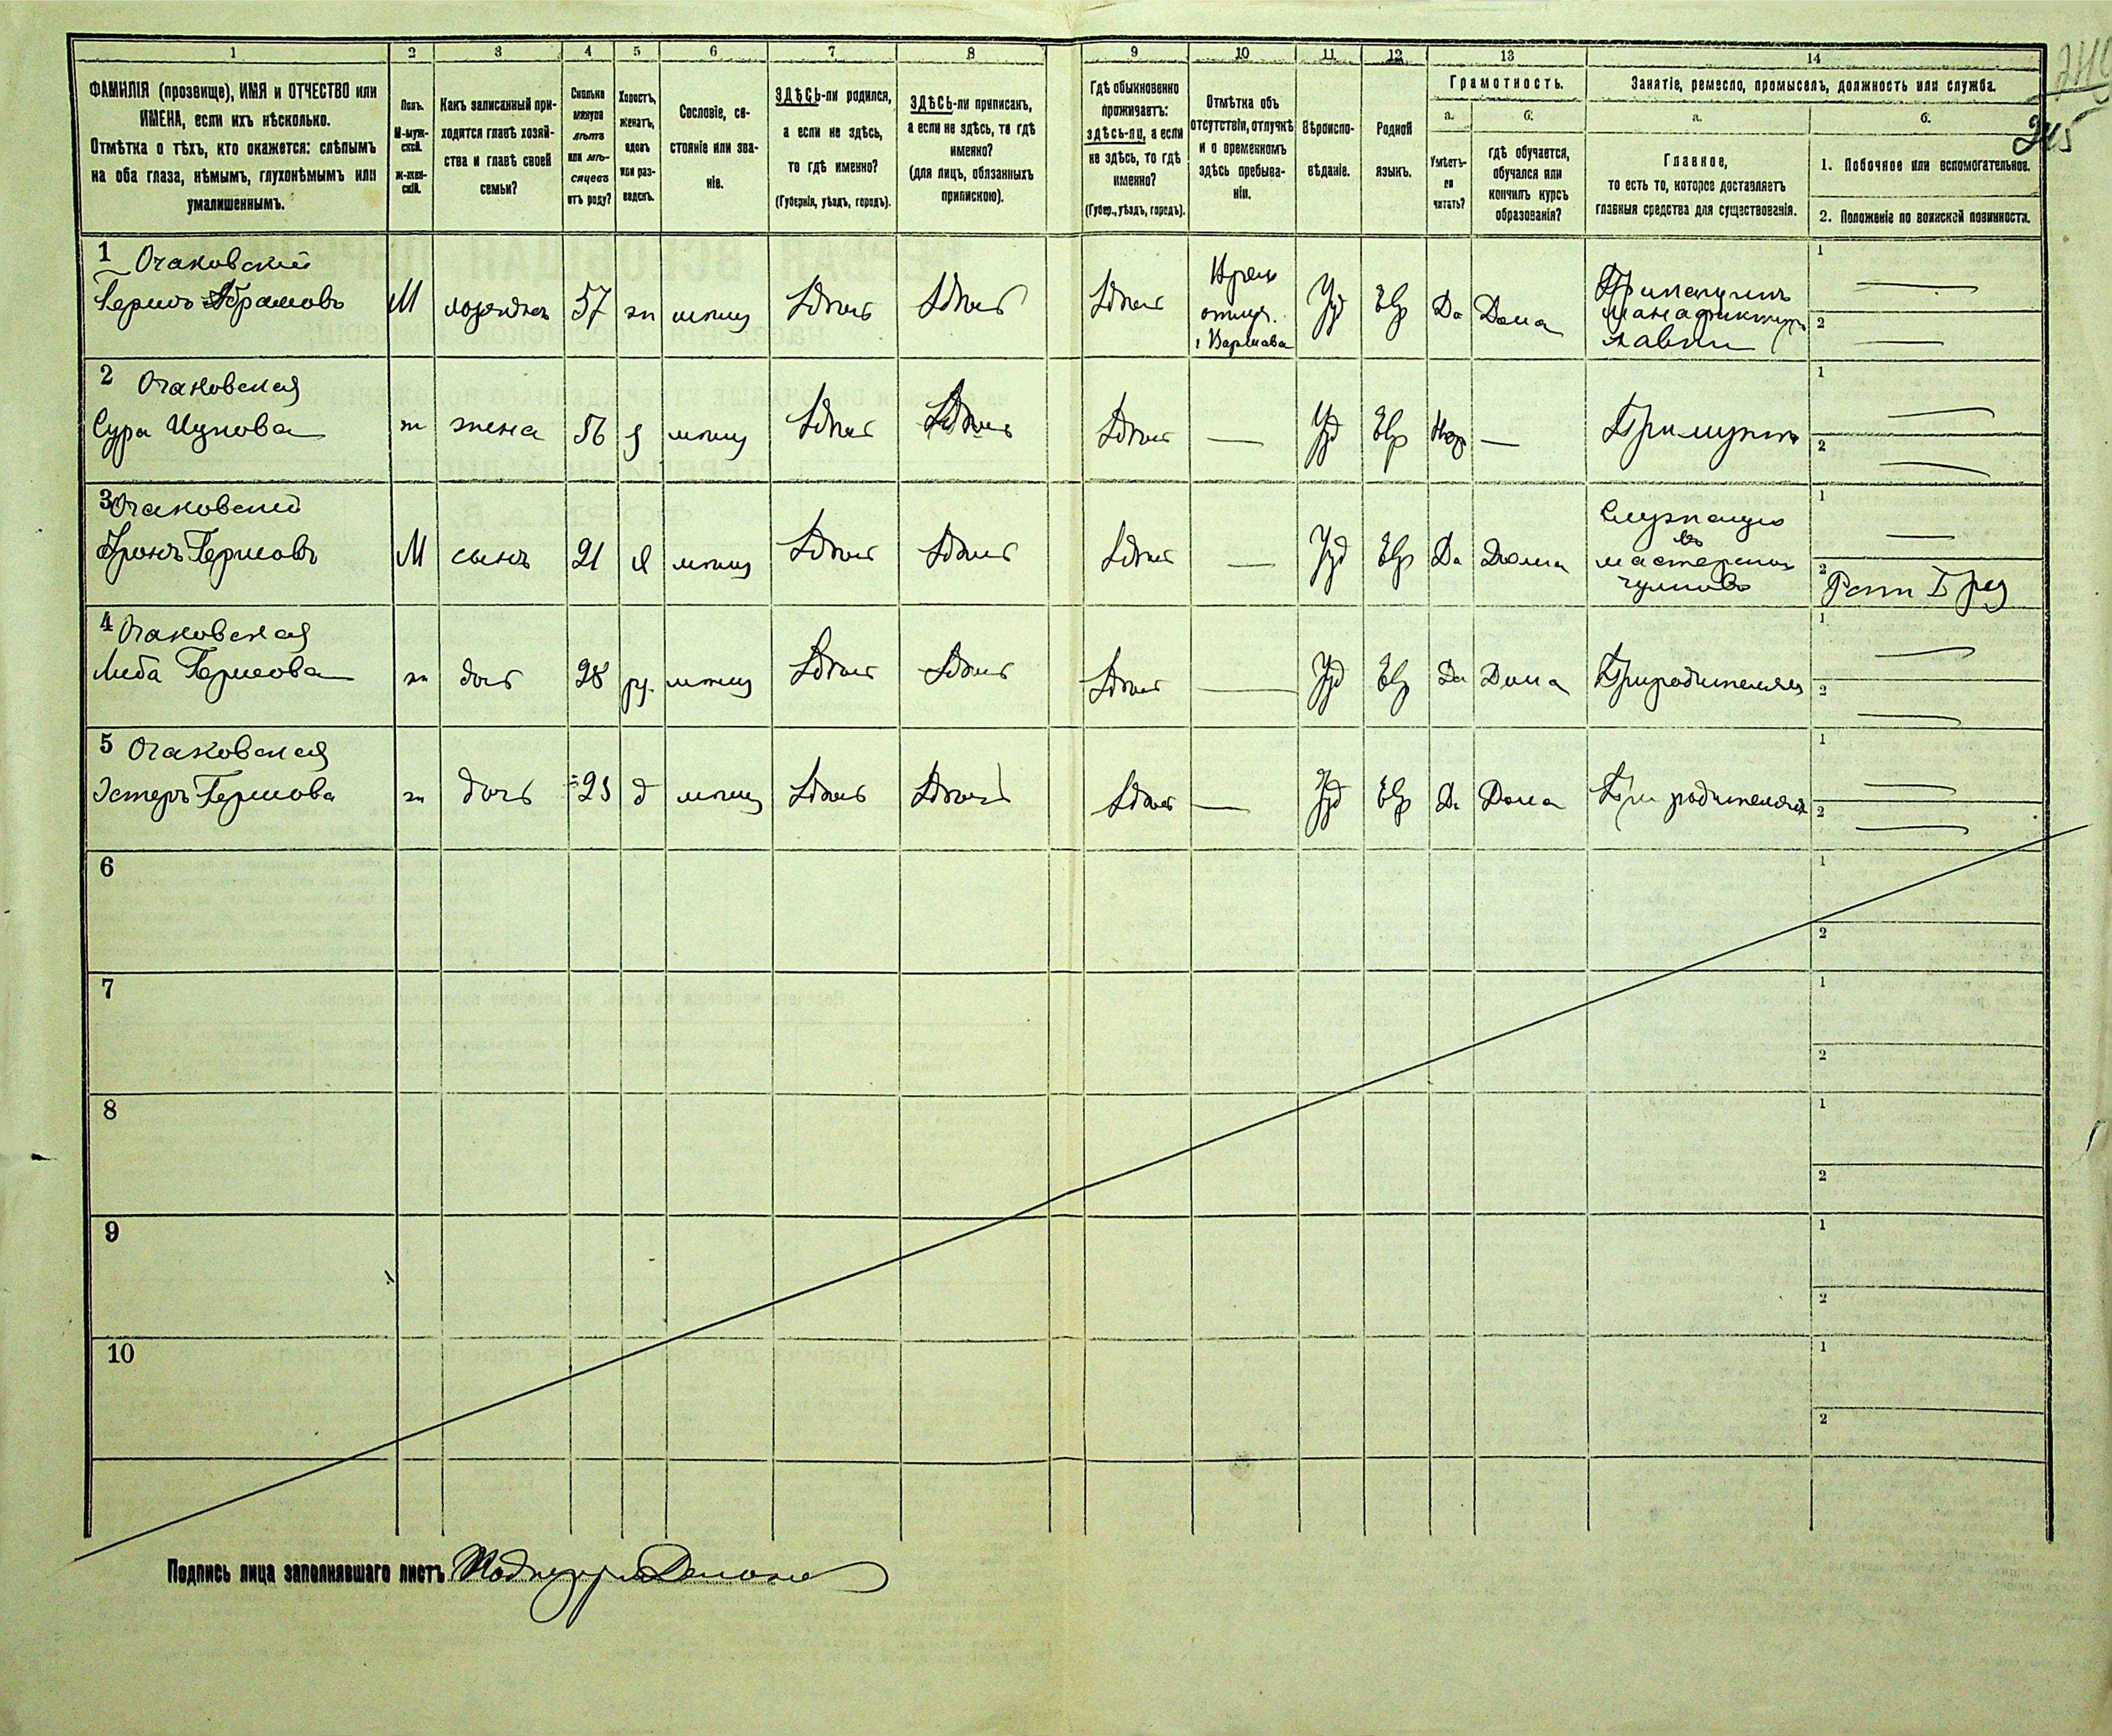 1 2 3 4 5 6 7 8 9 10 11 12 13 14
ФАМИЛІЯ (прозвище), ИМЯ и ОТЧЕСТВО или
ИМЕНА, если ихъ нѣсколько.
Отмѣтка о тѣхъ, кто окажется: слѣпымъ
на оба глаза, нѣмымъ, глухонѣмымъ или
умалишеннымъ.
Полъ.
М-муж-
ской.
Ж-жен-
скій.
Какъ записанный при-
ходится главѣ хозяй-
ства и главѣ своей
семьи?
Сколько
минуло
лѣтъ
или мѣ-
сяцевъ
отъ роду?
Холостъ,
женатъ,
вдовъ
или раз-
веденъ.
Сословіе, со-
стояніе или зва-
ніе.
ЗДѢСЬ-ли родился,
а если не здѣсь,
то гдѣ именно?
(Губернія, уѣздъ, городъ).
ЗДѢСЬ-ли приписанъ,
а если не здѣсь, то гдѣ
именно?
(для лицъ, обязанныхъ
припискою).
Гдѣ обыкновенно
проживаетъ:
здѣсь-ли, а если
не здѣсь, то гдѣ
именно?
(Губер., уѣздъ, городъ).
Отмѣтка объ
отсутствіи, отлучкѣ
и о временномъ
здѣсь пребыва-
ніи.
Вѣроиспо-
вѣданіе.
Родной
языкъ.
Грамотность.
а.
Умѣетъ-
ли
читать?
б.
гдѣ обучается,
обучался или
кончилъ курсъ
образованія?
Занятіе, ремесло, промыселъ, должность или служба.
а.
Главное,
то есть то, которое доставляетъ
главныя средства для существованія.
б.
1. Побочное или вспомогательное.
2. Положеніе по воинской повинности.
245
1 Очаковский
Гершъ Абрамовъ М 57 мѣщ Здѣсь Здѣсь Здѣсь
Варшава
Іуд Евр Да Дома
1
2
2 Очаковская
Сура Ицкова ж жена 56 з мѣщ Здѣсь Здѣсь Здѣсь — Іуд Евр — При мужѣ
1
2
3 Очаковский
Аронъ Гершовъ М сынъ 21 х мѣщ Здѣсь Здѣсь Здѣсь — Іуд Евр Да Дома
въ
мастерской
1
2
4 Очаковская
Либа Гершова ж дочь 28 мѣщ Здѣсь Здѣсь Здѣсь — Іуд Евр Да Дома При родителяхъ
1
2
5 Очаковская
Эстеръ Гершова ж дочь 23 д мѣщ Здѣсь Здѣсь Здѣсь — Іуд Евр Да Дома При родителяхъ
1
2
6
1
2
7
1
2
8
1
2
9
1
2
10
1
2
Подпись лица заполнявшаго листъ